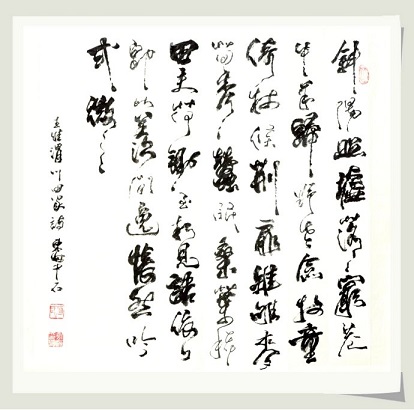 斜陽照墟落窮巷
牛羊歸野老念牧童
倚杖候荊扉雉雊麥
苗秀蠶眠桑葉稀
田夫荷鋤至相見語依〻
即此羨閑逸悵然吟
式微
王維渭川田家詩